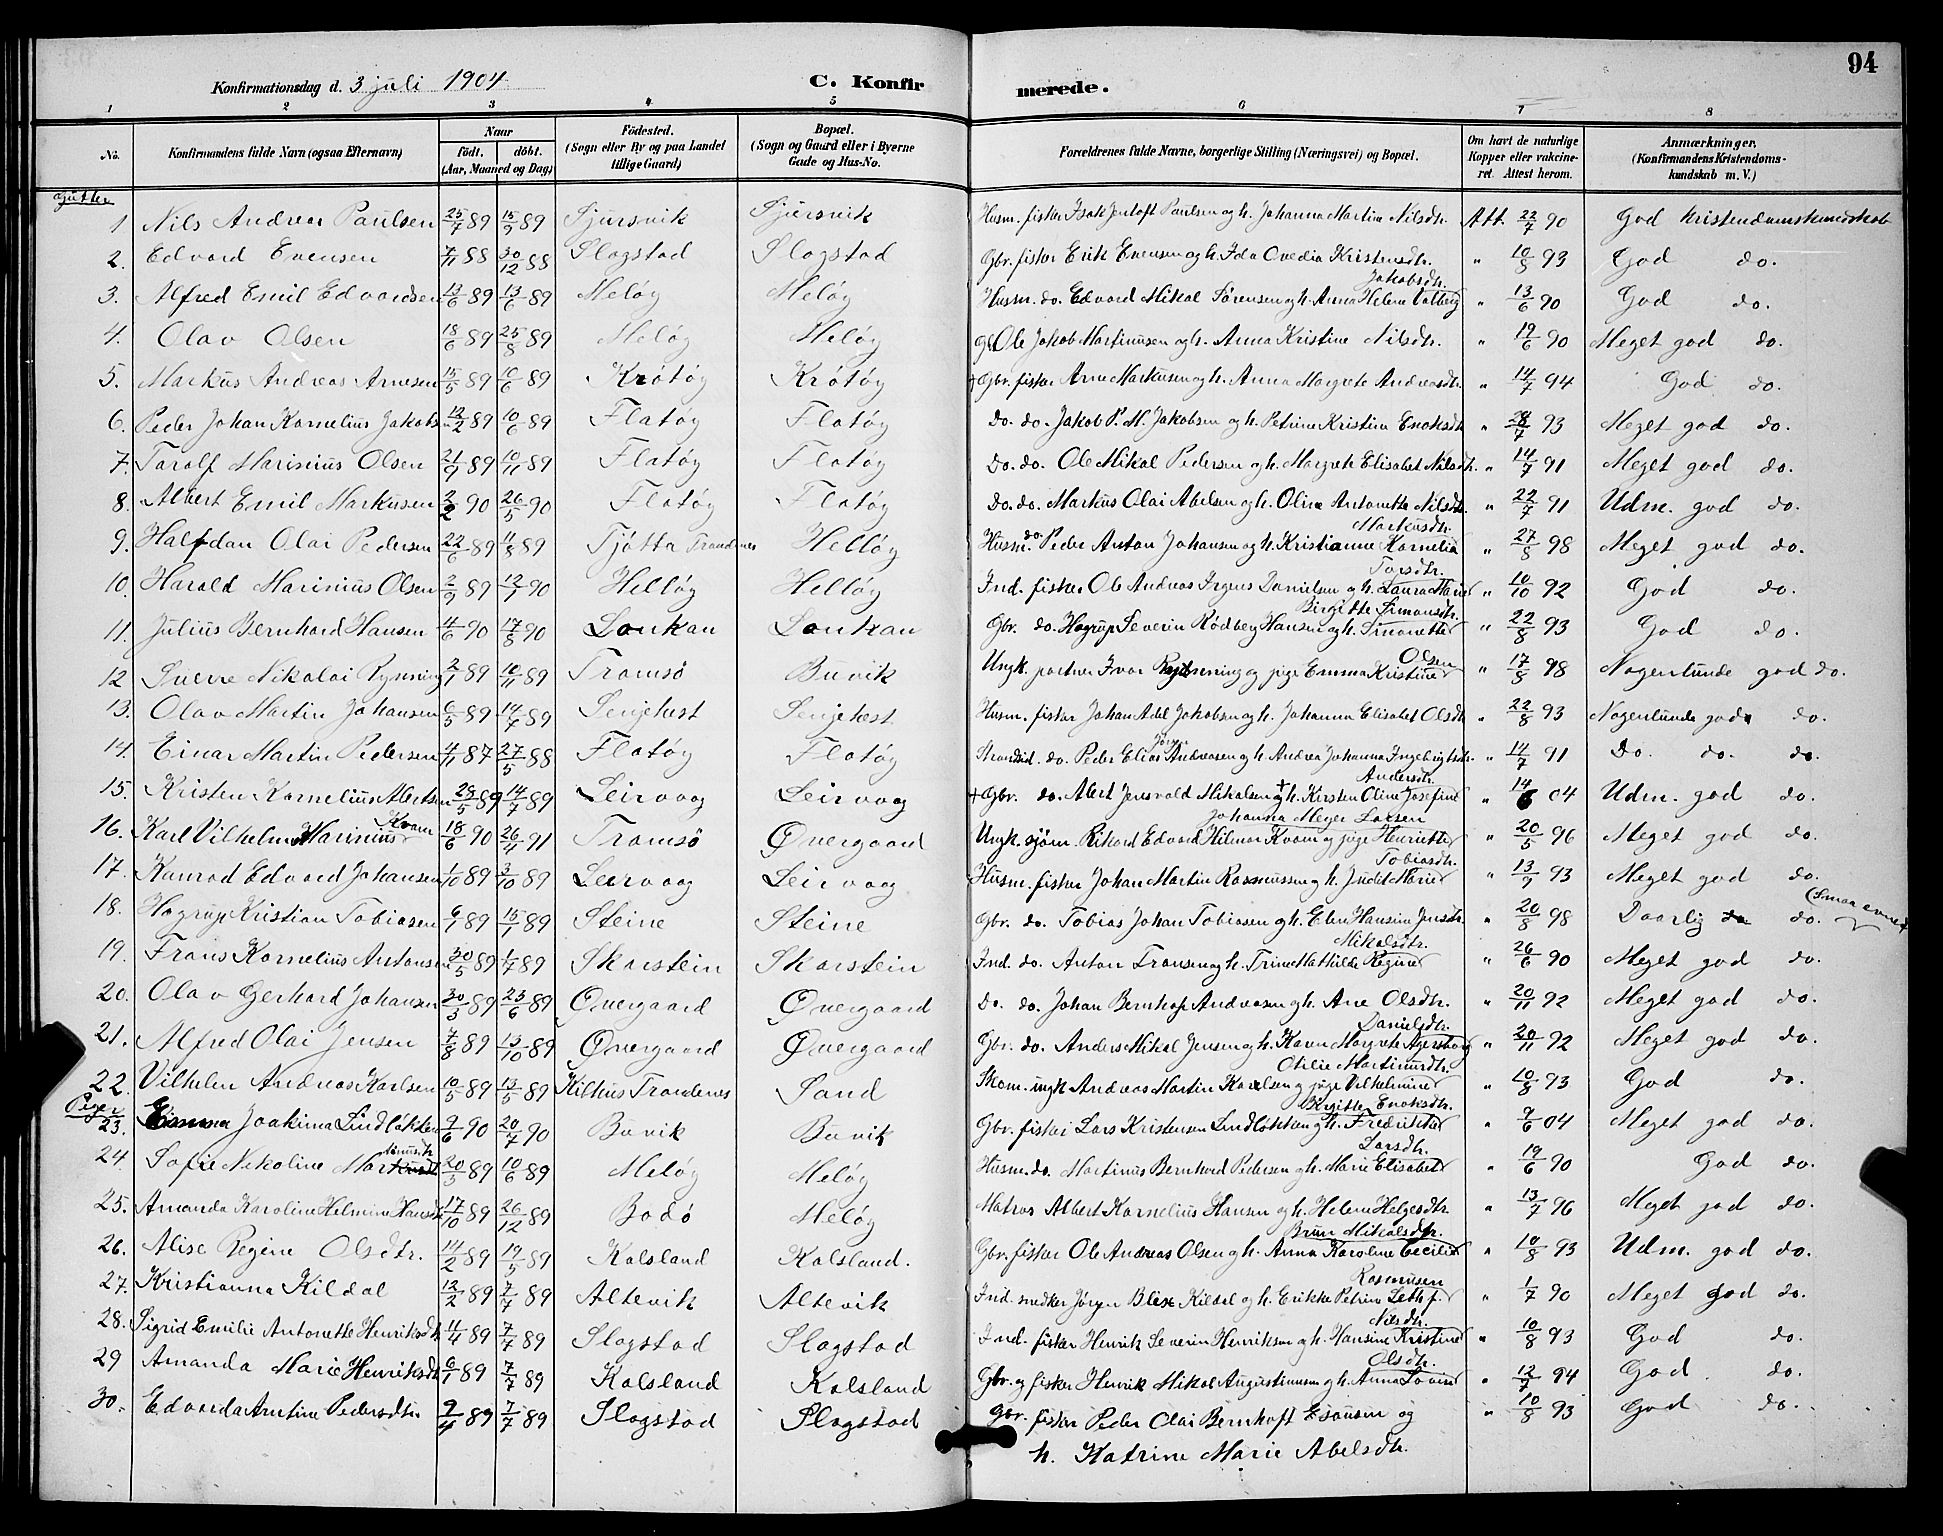 94
Konfirmationsdag d. 3 juli 1904 C. Konfirmerede.
1 2 3 4 5 6 7 8
No. Konfirmandens fulde Navn (ogsaa Efternavn) Naar födt. döbt. (Aar, Maaned og Dag) Födested. (Sogn eller By og paa Landet tillige Gaard) Bopæl. (Sogn og Gaard eller i Byerne Gade og Hus-No. Forældrenes fulde Navne, borgerlige Stilling (Næringsvei) og Bopæl. Om havt de naturlige Kopper eller vakcineret. Attest herom. Anmærkninger. (Konfirmandens Kristendomskundskab m. V.)
Gutter
1 Nils Andreas Paulsen 25/7 89 15/9 89 Sjursvik Sjursvik Husm. fisker Isak Jentoft Paulsen og h. Johanna Martina Nilsdtr. Att. 22/7 90 God kristendomskundskab
2. Edvard Evensen 7/11 88 30/12 88 Slagstad Slagstad Gbr. fisker Erik Evensen og h. Ida Ovedia Kristensdtr. " 10/8 93 God do.
3. Alfred Emil Edvardsen 13/6 89 13/6 89 Meløy Meløy Husm. do. Edvard Mikal Sørensen og h. Anna Helene Valberg Jakobsdtr. " 13/6 90 God do.
4. Olav Olsen 18/6 89 25/8 89 Meløy Meløy Ole Jakob Martinusen og h. Anna Kristine Nilsdtr. " 19/6 90 Meget god do.
5. Markus Andreas Arnesen 15/5 89 10/6 89 Krøtøy Krøtøy + Gbr. fisker Arne Markusen og h. Anna Margrete Andreasdtr. " 14/7 94 God do.
6. Peder Johan Kornelius Jakobsen 12/2 89 10/6 89 Flatøy Flatøy Do. do. Jakob P. M. Jakobsen og h. Petrine Kristine Enoksdtr. " 93 Meget god do.
7. Tarolf Marinius Olsen 21/9 89 10/11 89 Flatøy Flatøy Do. do. Ole Mikal Pedersen og h. Margrete Elisabet Nilsdtr. " 14/7 91 Meget god do.
8. Albert Emil Markusen 2/2 90 26/5 90 Flatøy Flatøy Do. do. Markus Olai Abelsen og h. Oline Antonette Nilsdtr. " 22/7 91 Udm. god do.
9. Halfdan Olai Pedersen 22/6 89 11/8 89 Tjøtta Trondenes Helløy Husm. do. Peder Anton Johansen og h. Kristianne Kornelia Markusdtr. " 27/8 98 Meget god do.
10. Harald Marinius Olsen 2/9 89 12/1 90 Helløy Helløy Ind. fisker Ole Andreas Irgens Danielsen og h. Laura Marie Torsdtr. " 10/10 92 God do.
11. Julius Bernhard Hansen 4/6 90 17/8 90 Lonkan Lonkan Gbr. do. Hagrup Severin Rødberg Hansen og h. Simonette Birgitte Simonsdtr. " 22/8 93 God do.
12 Sverre Nikolai Rynning 2/1 89 10/11 89 Tromsø Buvik Ungk. partner Ivar Rynning og pige Emma Kristine Olsen " 17/8 98 Nogenlunde god do.
13. Olav Martin Johansen 6/5 89 14/7 89 Senjehest Senjehest Husm. fisker Johan Adel Jakobsen og h. Johanna Elisabet Olsdtr. " 22/8 93 Nogenlunde god do.
14. Einar Martin Pedersen 4/11 87 27/5 88 Flatøy Flatøy Strandsid. do. Peder Elias Andreasen og h. Andrea Johanna Ingebrigtsdtr. " 14/7 91 Do. do. do.
15. Kristen Kornelius Abertsen 28/5 89 14/7 89 Leirvaag Leirvaag + Gbr. do. Abert Jensvold Mikalsen + h. Kirsten Oline Josefine Andersdtr. " 14/6 04 Udm. god do.
16. Karl Vilhelm Marinius Kvam 18/6 90 26/4 91 Tromsø Øvergaard Ungk. sjøm. Rikard Edvard Hilmar Kvam og pige Henriette Johanna Meyer Larsen " 20/5 96 Meget god do.
17. Konrad Edvard Johansen 1/10 89 3/10 89 Leirvaag Leirvaag Husm. fisker Johan Martin Rasmussen og h. Judit Marie Tobiasdtr. " 13/9 93 Meget god do.
18. Hagrup Kristian Tobiasen 6/1 89 15/1 89 Steine Steine Gbr. do. Tobias Johan Tobiasen og h. Elen Hansine Jensdtr. " 20/8 98 Daarlig do. (Smaa evner)
19. Frans Kornelius Antonsen 30/5 89 1/7 89 Skarstein Skarstein Ind. do. Anton Fransen og h. Trine Mathilde Regine Mikalsdtr. " 26/6 90 Meget god do.
20. Olav Gerhard Johansen 30/3 89 23/6 89 Øvergaard Øvergaard Do. do. Johan Bernhoft Andreasen og h. Ane Olsdtr. " 20/11 92 Meget god do.
21. Alfred Olai Jensen 7/8 89 13/10 89 Øvergaard Øvergaard Gbr. do. Anders Mikal Jensen og h. Karen Margrete Agersborg Danielsdtr. " 20/11 92 Meget god do.
22. Vilhelm Andreas Karlsen 10/5 89 13/5 89 Kilhus Trondenes Sand Skom. ungk. Andreas Martin Karelsen og pige Vilhelmine Otilie Martinusdtr. " 10/8 93 God do.
Piger
23. Emma Joakima Lindløkken 7/6 90 20/7 90 Buvik Buvik Gbr. fisker Lars Kristensen Lindløkken og h. Fredrikke Birgitte Enoksdtr. " 7/6 04 Meget god do.
24. Sofie Nikoline Martinusdtr. 20/5 89 10/6 89 Meløy Meløy Husm. do. Martinus Bernhard Pedersen og h. Marie Elisabet Larsdtr. " 19/6 90 God do.
25. Amanda Karoline Helmine Hansdtr. 17/10 89 26/12 89 Bodø Meløy Matros Albert Kornelius Hansen og h. Helene Helgesdtr. " 13/7 96 Meget god do.
26. Alise Regine Olsdtr. 14/2 89 19/5 89 Kalsland Kalsland. Gbr. fisker Ole Andreas Olsen og h. Anna Karoline Cecilie Brun Mikalsdtr. " 10/8 93 Udm. god do.
27. Kristianna Kildal 12/2 89 7/7 89 Altevik Altevik Ind. snedker Jørgen Blix Kildal og h. Erikke Petrine Leth f. Rasmusen " 1/7 90 Meget god do.
28. Sigrid Emilie Antonette Henriksdtr. 11/4 89 7/7 89 Slagstad Slagstad Ind. fisker Henrik Severin Henriksen og h. Hansine Kristine Nilsdtr. " 10/8 93 God do.
29 Amanda Marie Henriksdtr. 6/1 89 7/7 89 Kalsland Kalsland Gbr. og fisker Henrik Mikal Augustinusen og h. Anna Lovise Olsdtr. " 12/7 94 God do.
30. Edvarda Arntine Pedersdtr. 9/4 89 7/7 89 Slagstad Slagstad Gbr. fisker Peder Olai Bernhoft Esausen og " 10/8 93 God do.
h. Katrine Marie Abelsdtr.